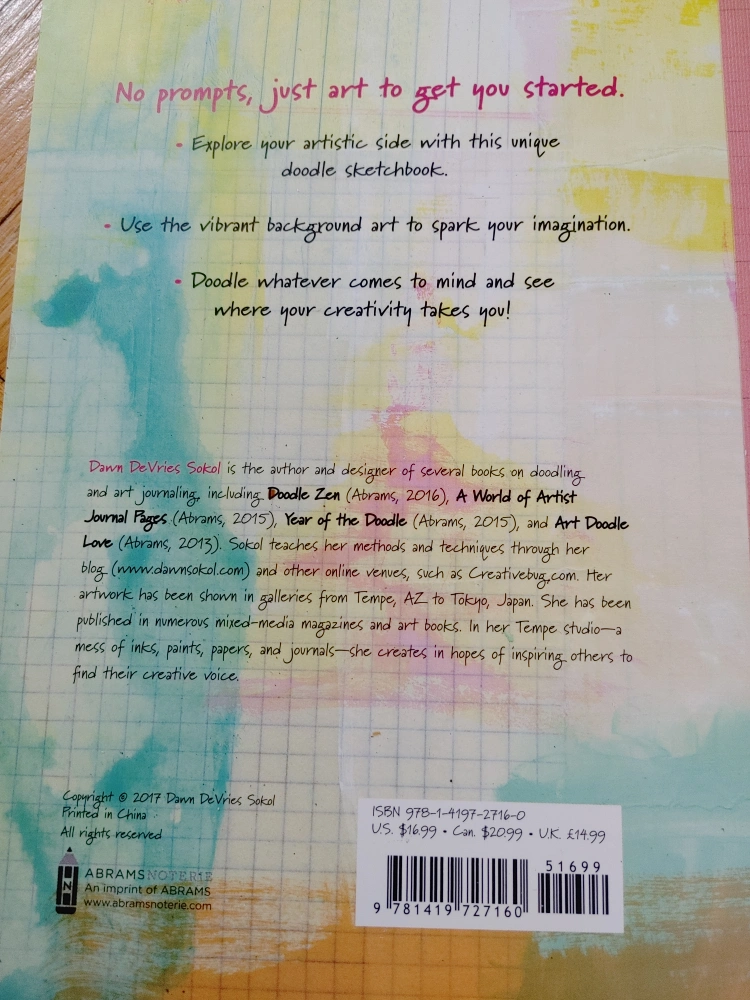 No prompts, just art to get you started.
• Explore your artistic side with this unique
doodle sketchbook.
• Use the vibrant background art to spark your imagination.
• Doodle whatever comes to mind and see
where your creativity takes you!
Dawn DeVries Sokol is the author and designer of several books on doodling
and art journaling, including Doodle Zen (Abrams, 2016), A World of Artist
Journal Pages (Abrams, 2015), Year of the Doodle (Abrams, 2015), and Art Doodle
Love (Abrams, 2013). Sokol teaches her methods and techniques through her
blog (www.dawnsokol.com) and other online venues, such as Creativebug.com. Her
artwork has been shown in galleries from Tempe, AZ to Tokyo, Japan. She has been
published in numerous mixed-media magazines and art books. In her Tempe studio—a
mess of inks, paints, papers, and journals—she creates in hopes of inspiring others to
find their creative voice.
Copyright © 2017 Dawn DeVries Sokol
Printed in China
All rights reserved
N
ABRAMSNOTERIE
An imprint of ABRAMS
www.abramsnoterie.com
ISBN 978-1-4197-2716-0
U.S. $16.99 • Can. $20.99 • U.K. £14.99
51699
9 781419 727160